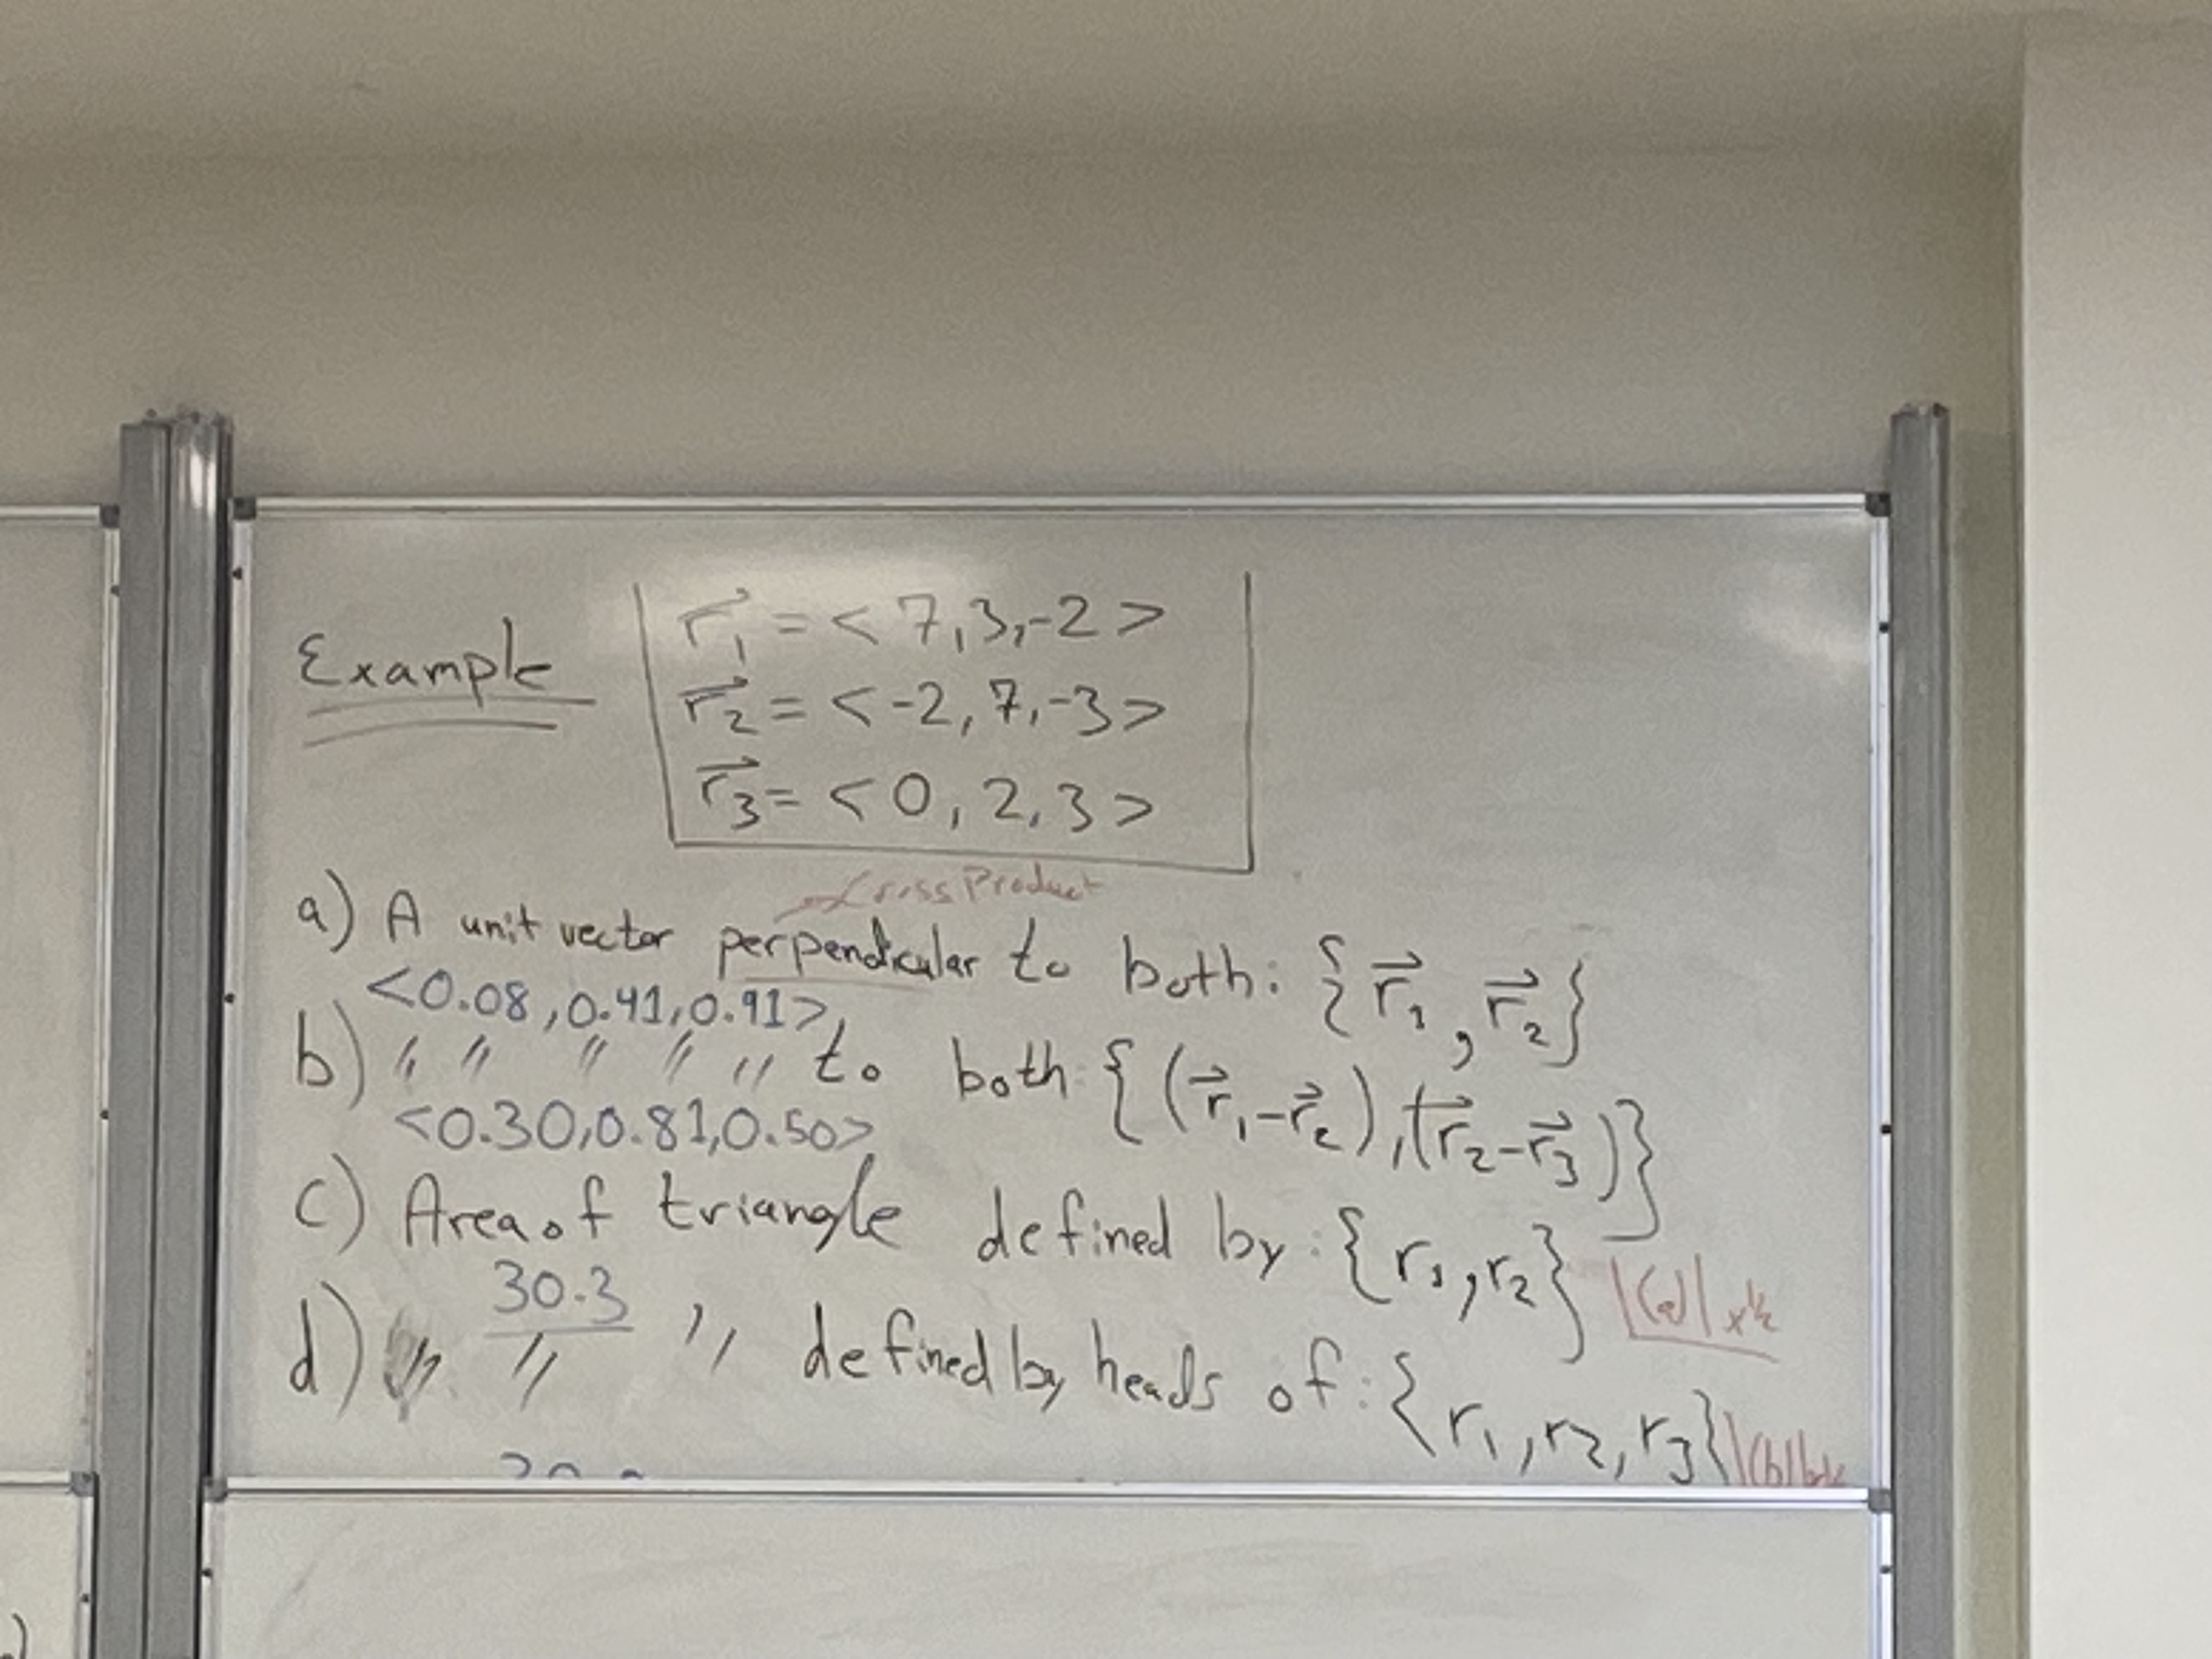 Example
r₁ = <7,3,-2>
r₂ = <-2,7,-3>
r₃ = <0,2,3>
Cross Product
a) A unit vector perpendicular to both: {r₁, r₂}
<0.08,0.41,0.91>
b) " " " " " to both: {(r₁-r₂),(r₂-r₃)}
<0.30,0.81,0.50>
c) Area of triangle defined by: {r₁,r₂} |(a)| x½
30.3
d) " " " defined by heads of: {r₁,r₂,r₃}